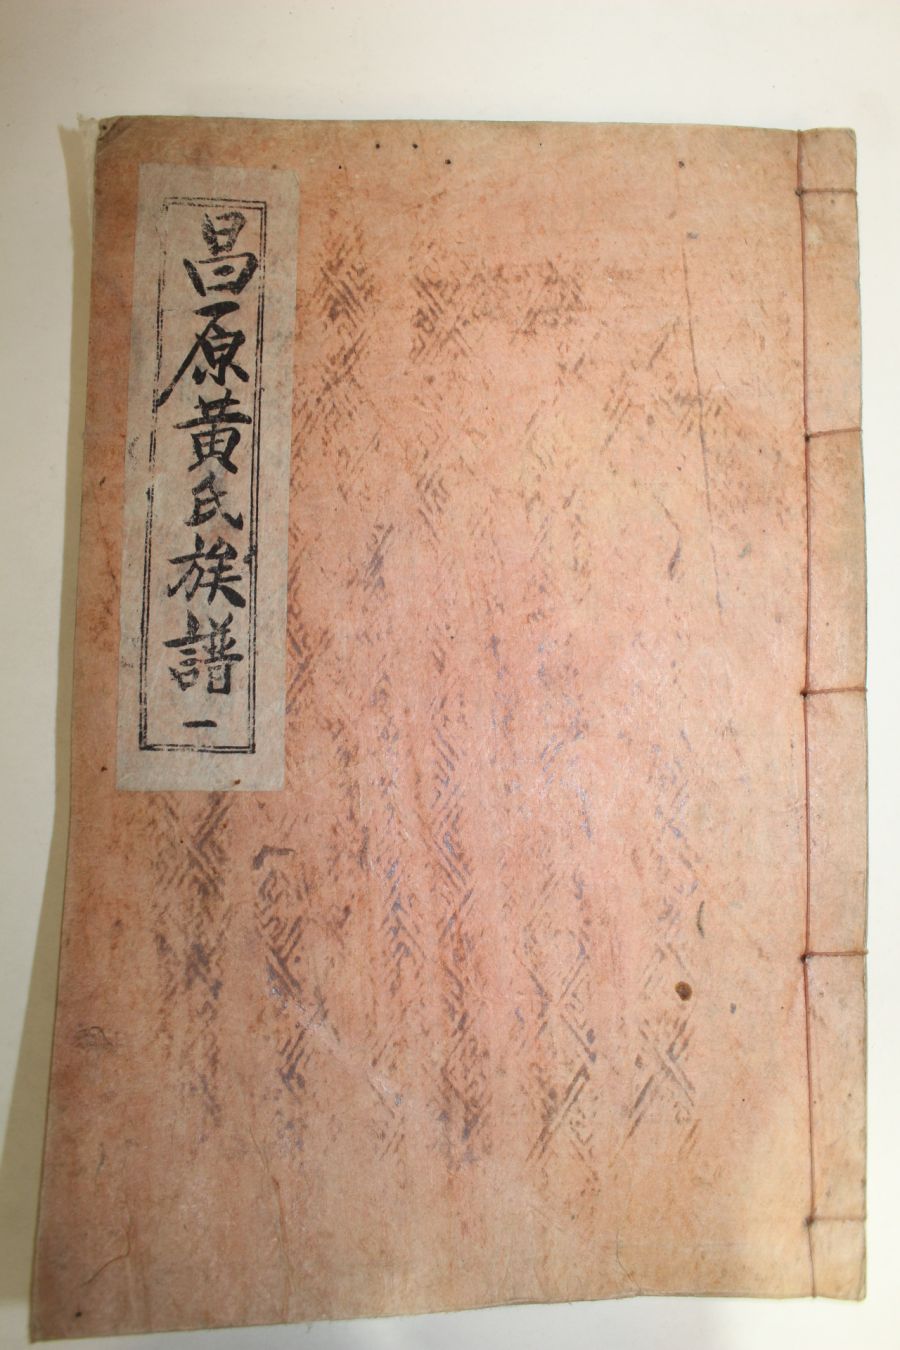 昌原黃氏族譜 一